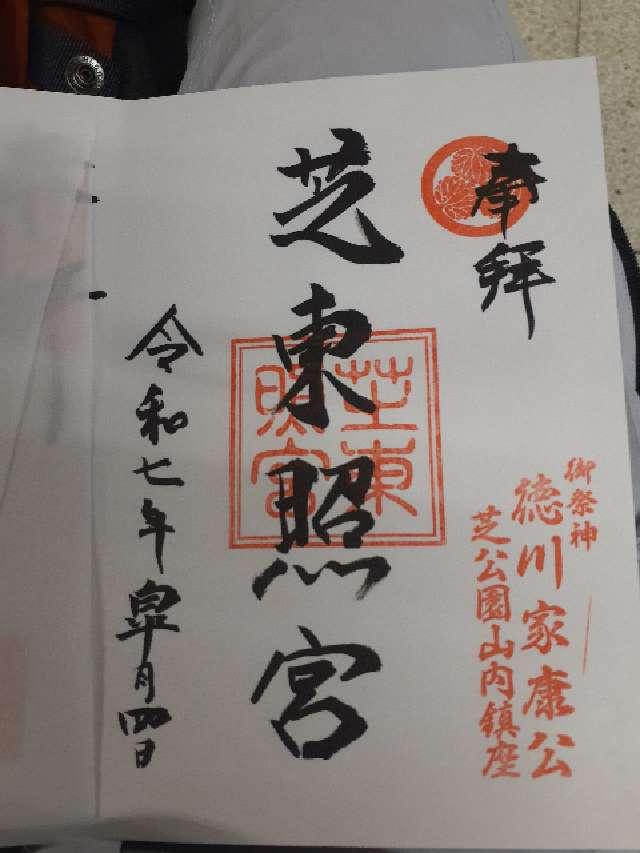 奉拝
御祭神
徳川家康公
芝公園山内鎮座
芝東照宮
芝東
照宮
令和七年皐月四日